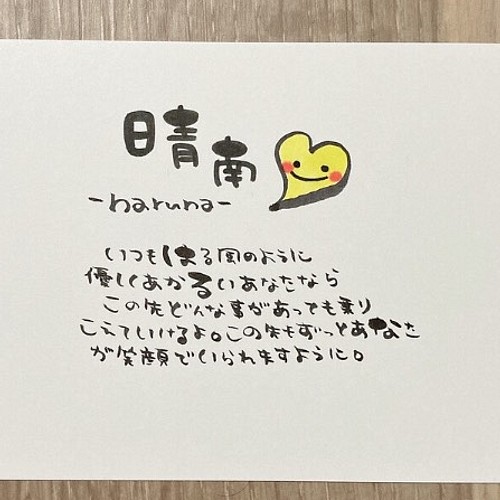 晴南
-haruna-
いつもはる風のように
優しくあかるいあなたなら
この先どんな事があっても乗り
こえていけるよ。この先もずっとあなた
が笑顔でいられますように。